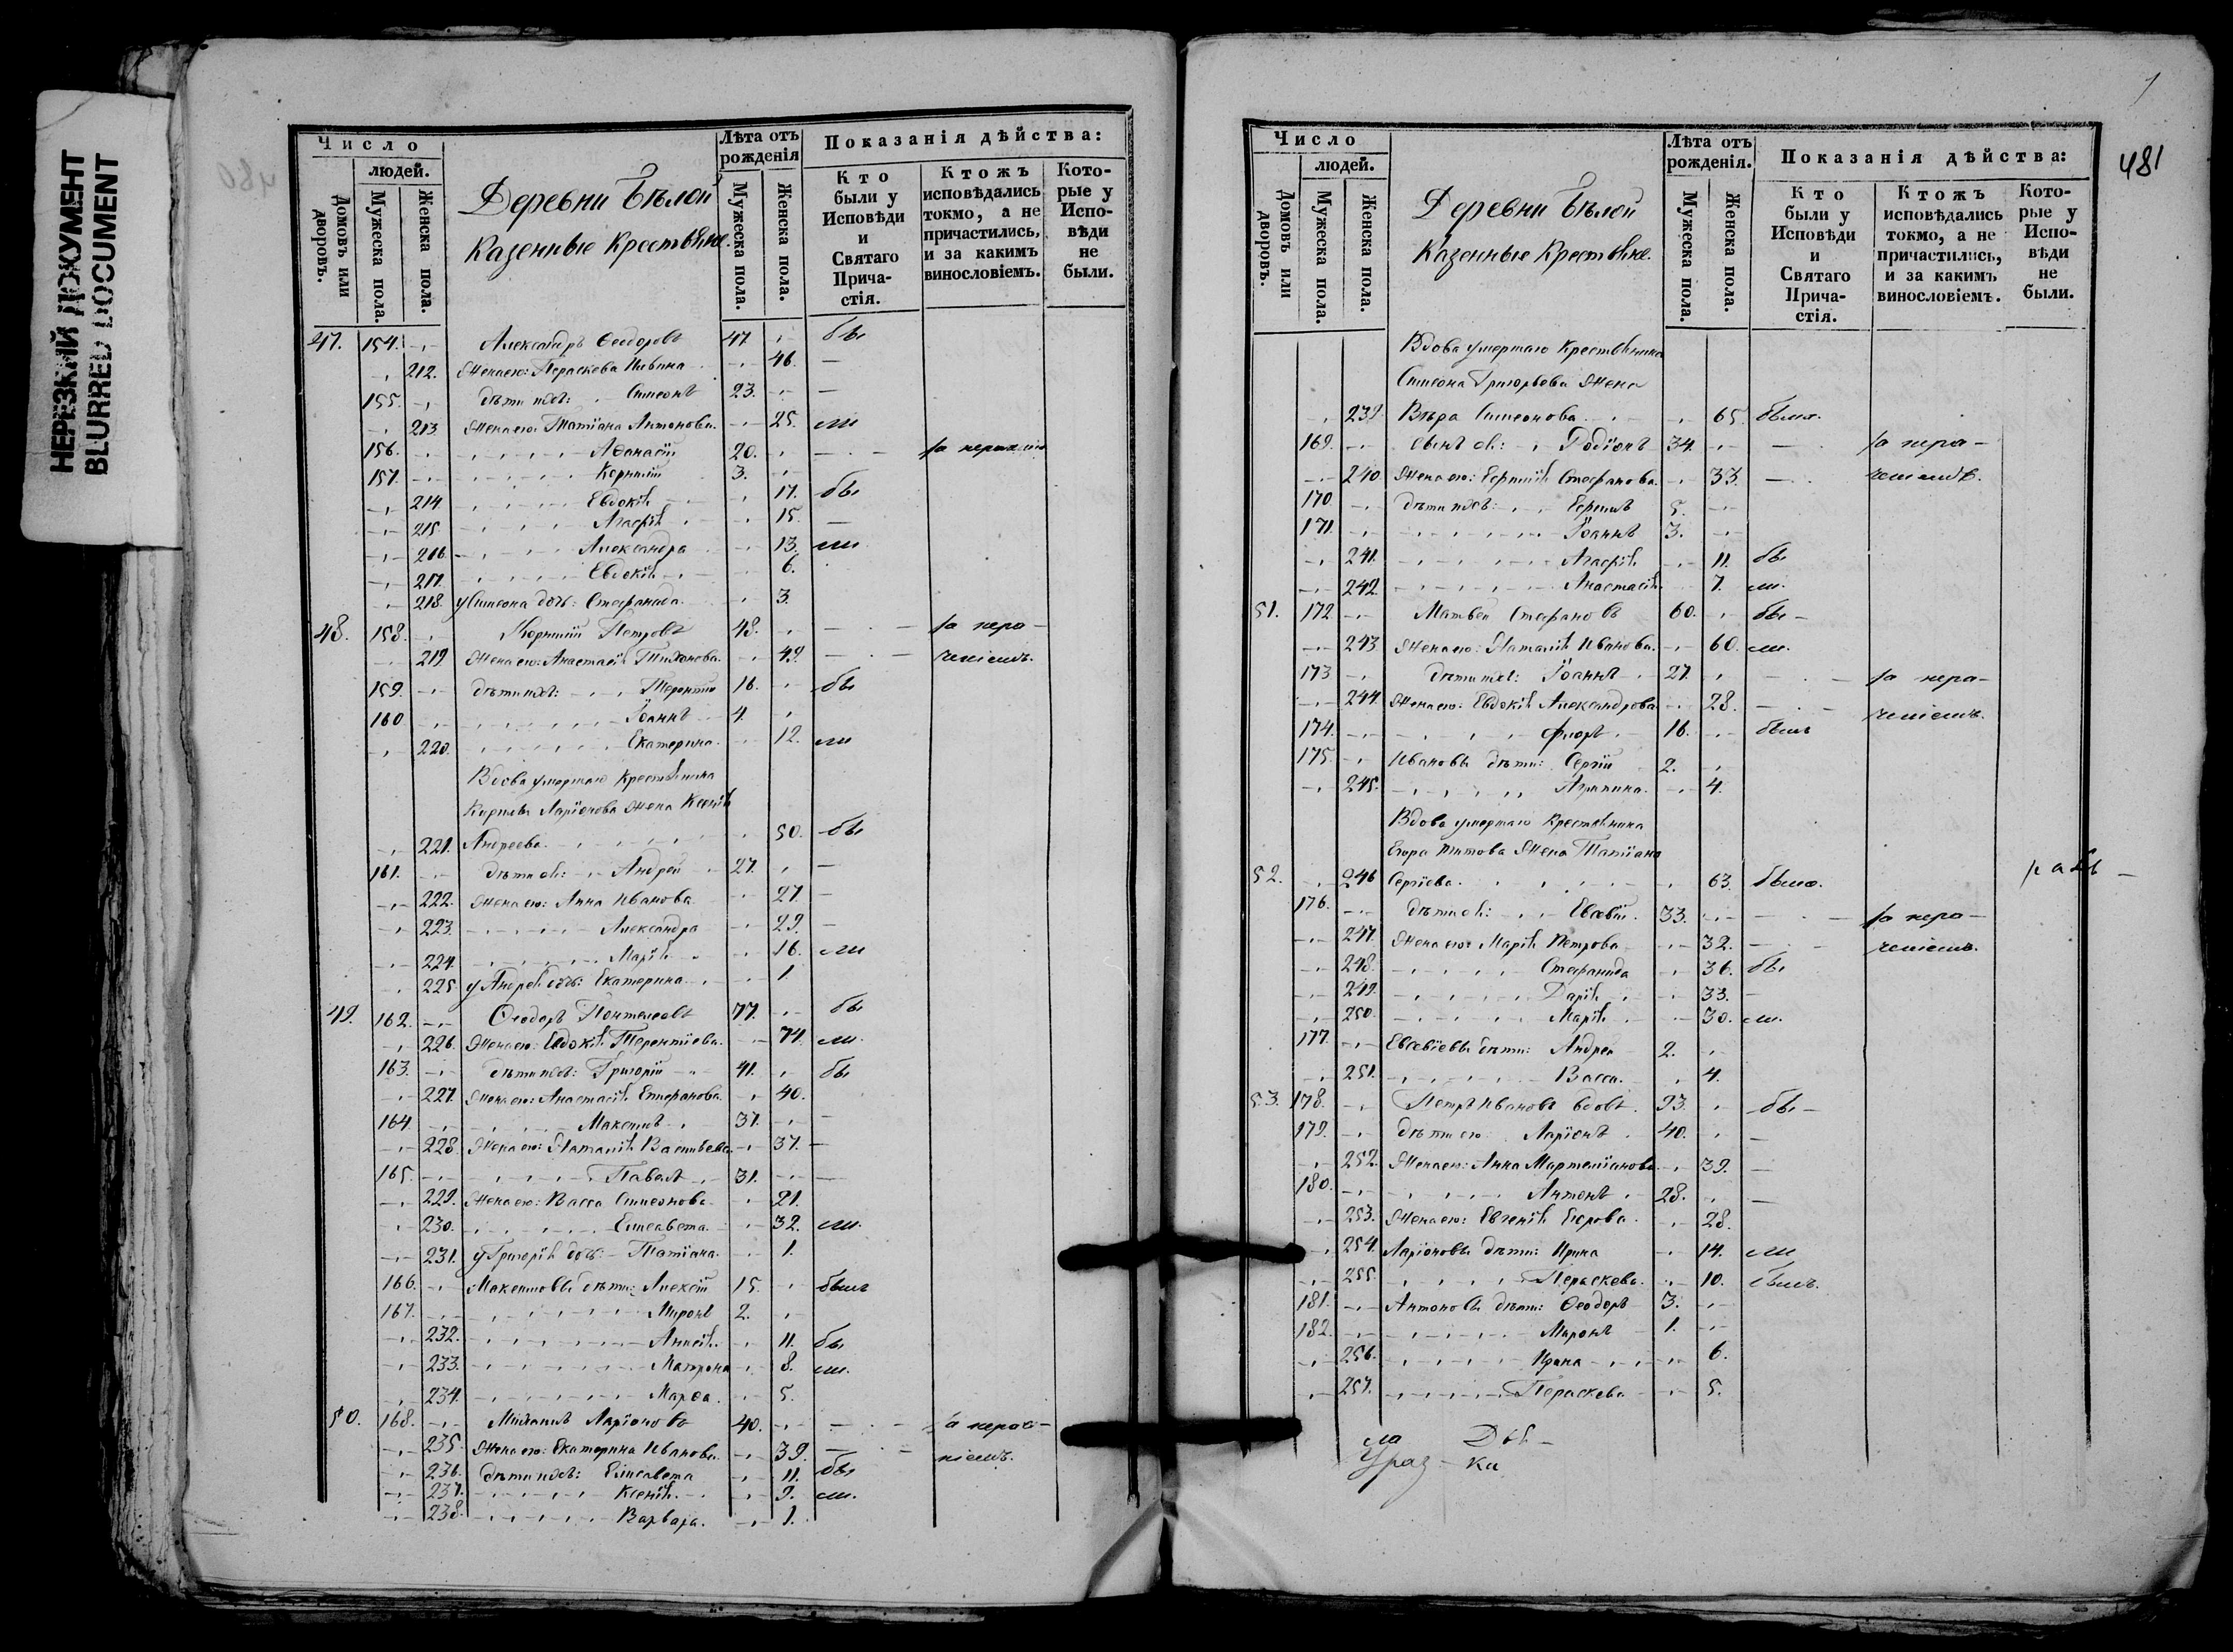 НЕРЕЗКИЙ ДОКУМЕНТ
BLURRED DOCUMENT
480
Число
людей.
Домовъ или дворовъ.
Мужеска пола.
Женска пола.
Деревни Бѣлой
Казенные Крестьяне.
Лѣта отъ рожденія
Мужеска пола.
Женска пола.
Показанія дѣйства:
Кто были у Исповѣди и Святаго Прича-стія.
Ктожъ исповѣдались токмо, а не причастились, и за какимъ винословіемъ.
Кото-рые у Испо-вѣди не были.
47. 154. Александръ Ѳеодоровъ 47 бы
212. Жена его: Параскева 46. —
155. дѣти ихъ: Симеонъ 23. —
213. Жена его: Татіана Антонова. 25. ли
156. Аѳанасій 20. — за нераченіемъ
157. Корнилій 3.
214. Евдокія 17. бы
215. Агафія 15. —
216. Александра 13. ли
217. Евдокія 6.
218. у Симеона дочь: Стефанида. 3.
48. 158. Корнилій Петровъ 48. — за нера-
219. Жена его: Анастасія Тихонова. 49. — ченіемъ.
159. дѣти ихъ: Терентій 16. бы
160. Іоаннъ 4.
220. Екатерина. 12. ли
Вдова умершаго крестьянина
Ларіонова жена Ксенія
221. Андреева. 50. бы
161. дѣти ея: Андрей 27. —
222. Жена его: Анна Иванова 27. —
223. Александра 29. —
224. Марія 16. ли
225. у Андрея дочь: Екатерина 1.
49. 162. Ѳеодоръ 77. бы
226. Жена его: Евдокія Терентіева. 74. ли.
163. дѣти ихъ: Григорій 41. бы
227. Жена его: Анастасія Епифанова. 40.
164. Максимъ 37. —
228. Жена его: Наталія Васильева 37. —
165. Павелъ 31. —
229. Жена его: Васса Симеонова 21.
230. Елисавета 32. ли.
231. у Григорія дочь: Татіана. 1.
166. Максимовы дѣти: Алексій 15. былъ
167. Миронъ 2.
232. Анисія 11. бы
233. Матрона 8. ли.
234. Марѳа. 5.
50. 168. Михаилъ Ларіоновъ 40. — за нераче-
235. Жена его: Екатерина Иванова. 39. — ніемъ.
236. дѣти ихъ: Елисавета 11. бы
237. Ксенія. 9. ли.
238. Варвара. 1.
481
Число
людей.
Домовъ или дворовъ.
Мужеска пола.
Женска пола.
Деревни Бѣлой
Казенные Крестьяне.
Лѣта отъ рожденія.
Мужеска пола.
Женска пола.
Показанія дѣйства:
Кто были у Исповѣди и Святаго Прича-стія.
Ктожъ исповѣдались токмо, а не причастились, и за какимъ винословіемъ.
Кото-рые у Испо-вѣди не были.
Вдова умершаго Крестьянина
Симеона Григорьева жена
239. Вѣра Симеонова. 65. была.
169. сынъ ея: Родіонъ 34. — за нера-
240. Жена его: Ефимія Стефанова. 33. — ченіемъ.
170. дѣти ихъ: Ефимъ 5.
171. Іоаннъ 3.
241. Агафія 11. бы
242. Анастасія. 7. ли.
51. 172. Матвей Стефановъ 60. бы -
243. Жена его: Наталія Иванова. 60. ли.
173. дѣти ихъ: Іоаннъ 27. — за нера-
244. Жена его: Евдокія Александрова 28. — ченіемъ.
174. Флоръ 16. былъ
175. Ивановы дѣти: Сергій 2.
245. Агрипина. 4.
Вдова умершаго крестьянина
Егора Титова Жена Татіана
52. 246 Сергіева. 63. была.
176. дѣти ея: Евсевій. 33. — за нера-
247. Жена его: Марія Петрова 32. — ченіемъ.
248. Стефанида 36. бы
249. Дарія 33. —
250. Марія 30. ли.
177. Евсевіевы дѣти: Андрей 2.
251. Васса. 4.
53. 178. Петръ Ивановъ вдовъ. 93. бы -
179. дѣти его: Ларіонъ 40. —
252. Жена его: Анна Мартиніанова 39. —
180. Антонъ 28. —
253. Жена его: Евгенія Егорова. 28.
254. Ларіоновы дѣти: Ирина 14. ли
255. Параскева. 10. былъ.
181. Антоновы дѣти: Ѳеодоръ 3.
182. Миронъ 1.
256. Ирина 6.
257. Параскева 5.